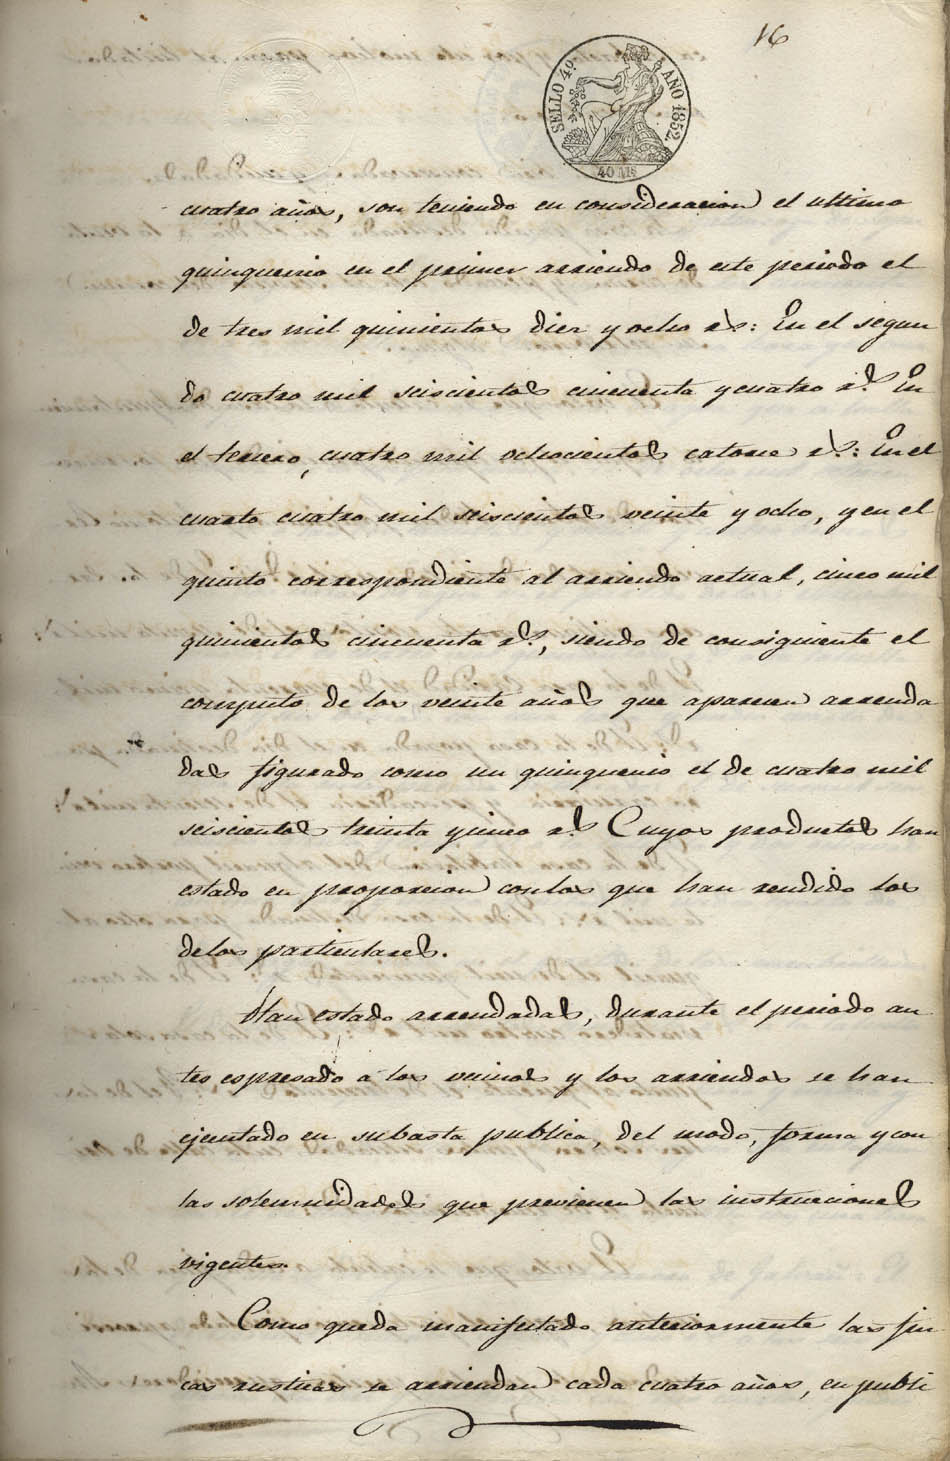 16
SELLO 4º. AÑO 1852.
40 Ms
cuatro años, son teniendo en consideracion el ultimo
quinquenio en el primer arriendo de este periodo el
de tres mil quinientos diez y ocho rs: En el segun
do cuatro mil seiscientos cincuenta y cuatro rs En
el tercero, cuatro mil ochocientos catorce rs: En el
cuarto cuatro mil seiscientos veinte y ocho, y en el
quinto correspondiente al arriendo actual, cinco mil
quinientos cincuenta rs, siendo de consiguiente el
computo de los veinte años que aparecen arrenda
das figurado como un quinquenio el de cuatro mil
seiscientos treinta y cinco rs Cuyos productos han
estado en proporcion con los que han rendido los
de los particulares.
Han estado arrendadas, durante el periodo an
tes espresado a los vecinos y los arriendos se han
ejecutado en subasta publica, del modo, forma y con
las solemnidades que previenen las instrucciones
vigentes.
Como queda manifestado anteriormente las fin
cas rusticas se arriendan cada cuatro años, en publi